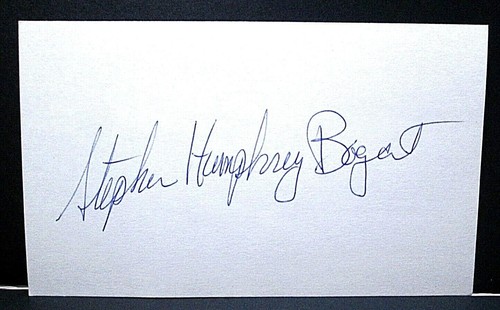 Stephen Humphrey Bogart